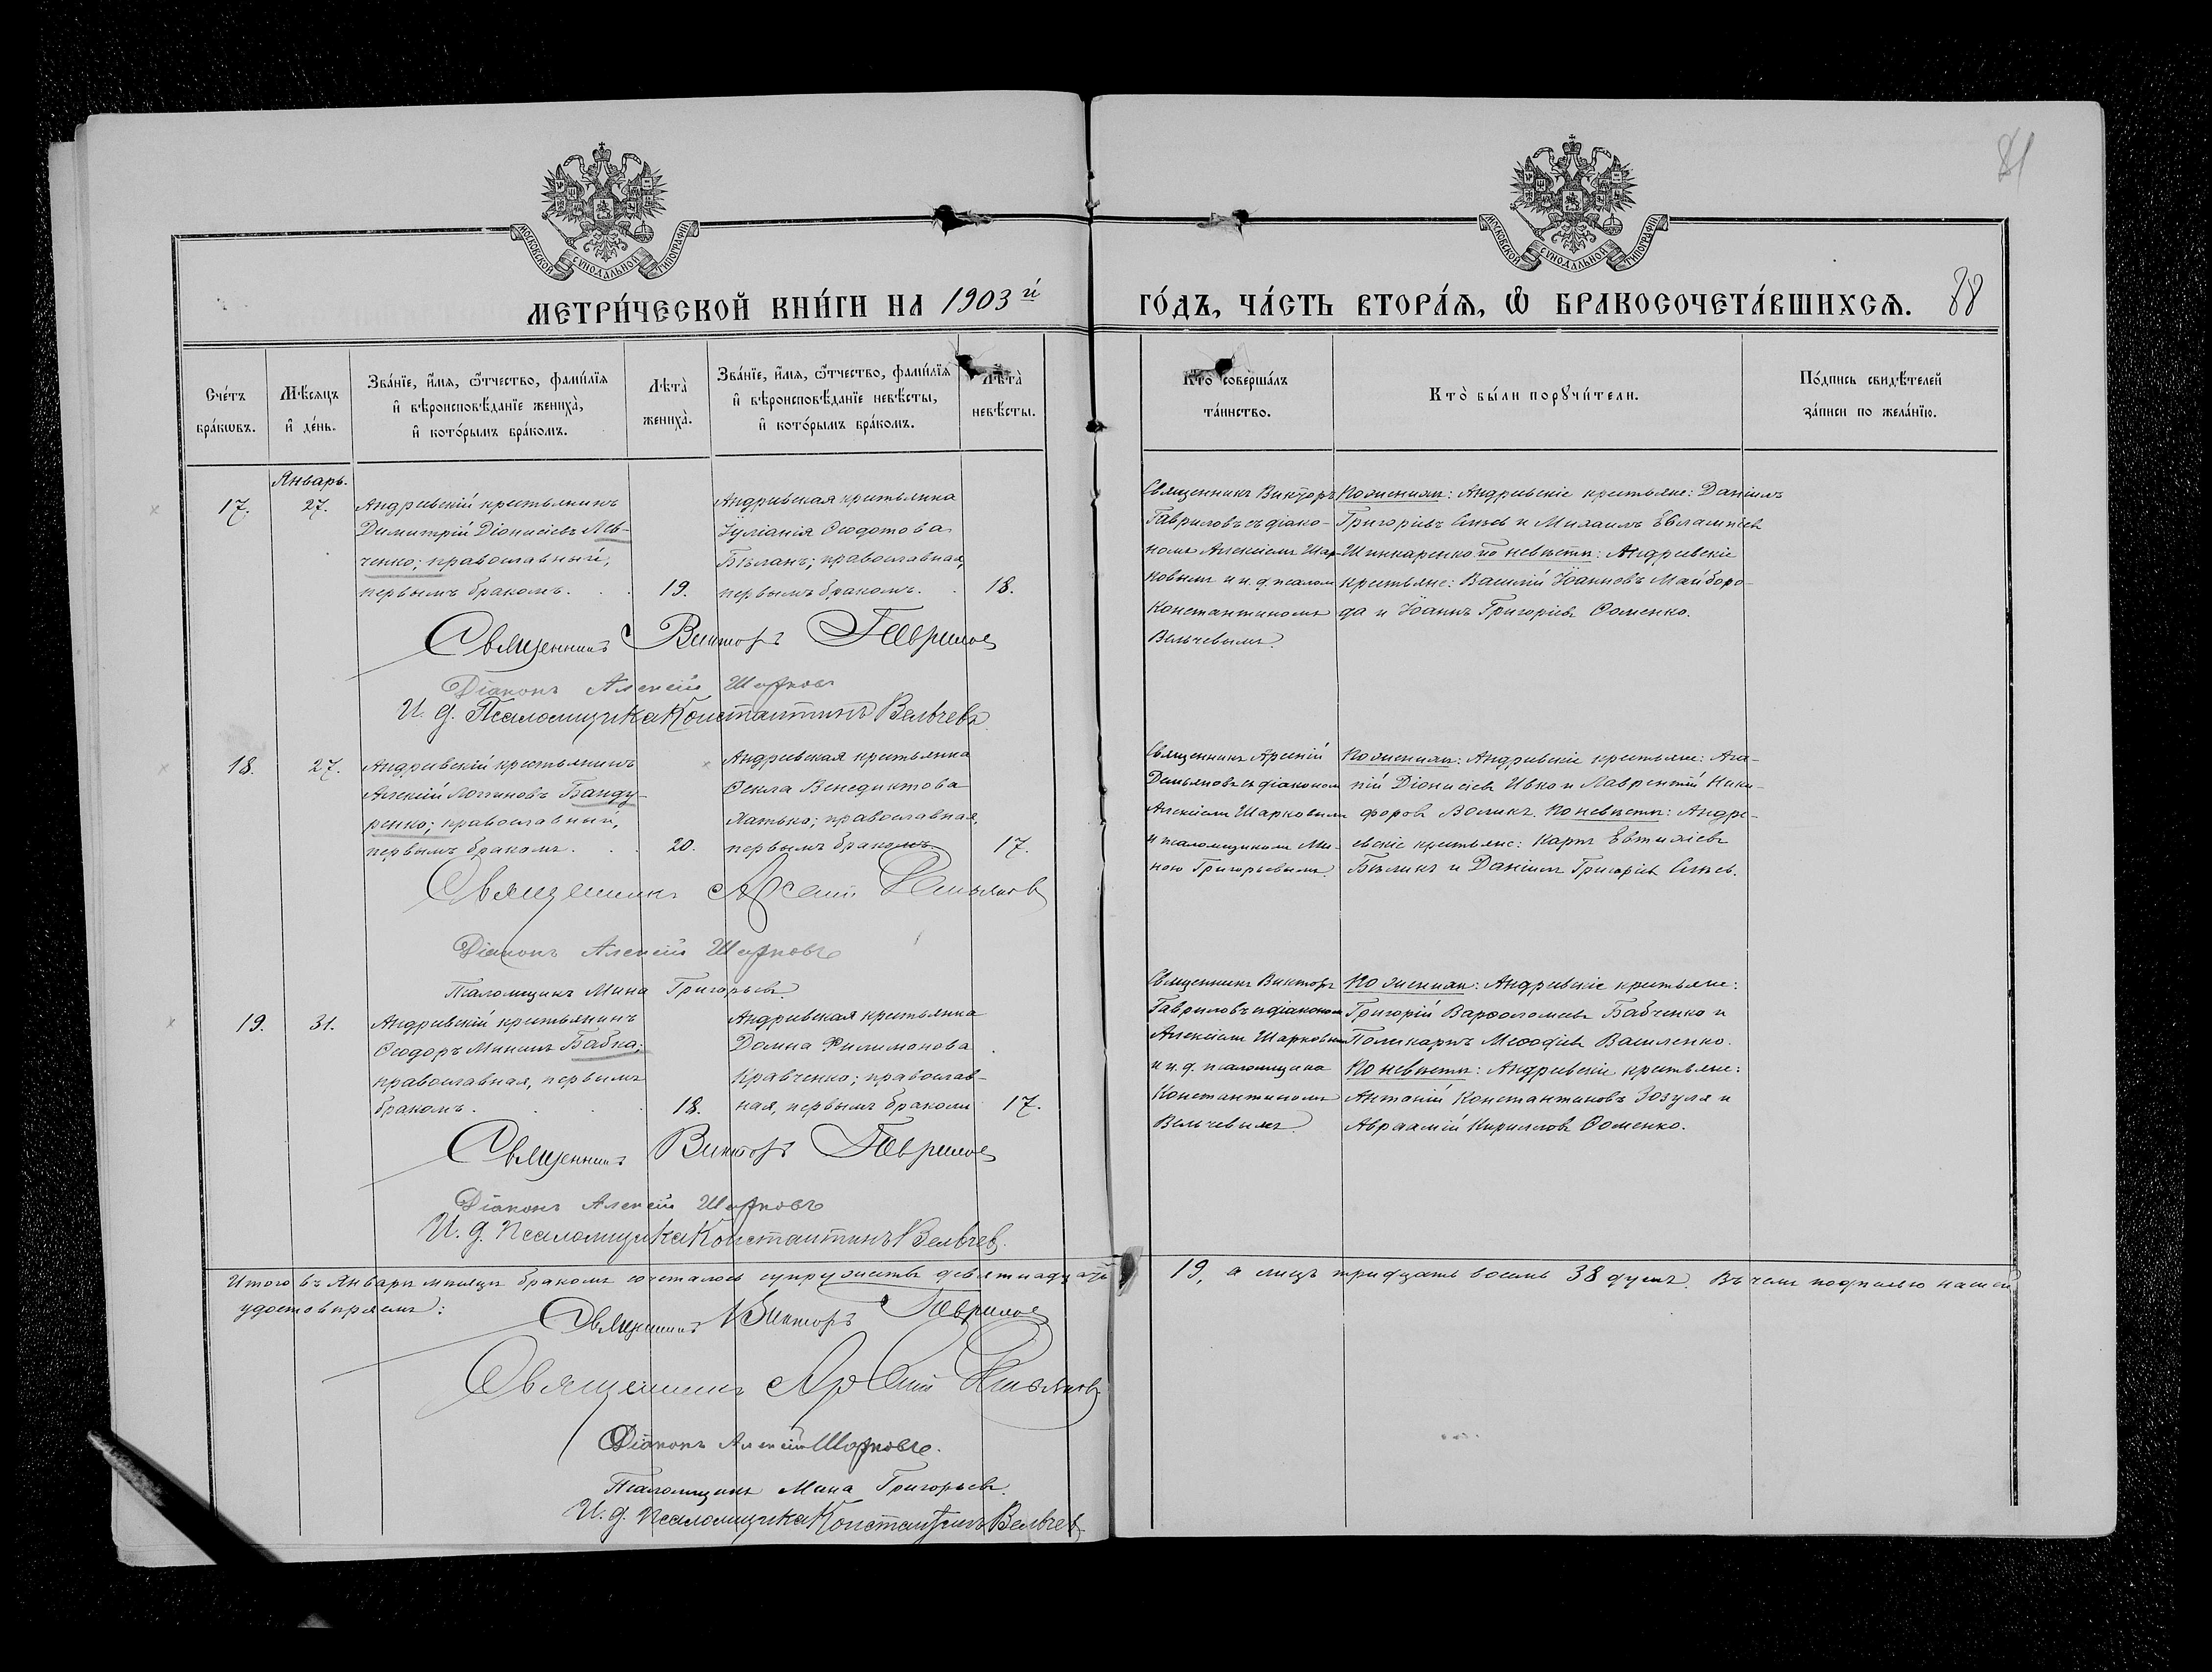 81
МОСКОВСКОЙ СѴНОДАЛЬНОЙ ТИПОГРАФІИ
МОСКОВСКОЙ СѴНОДАЛЬНОЙ ТИПОГРАФІИ
МЕТРИ́ЧЕСКОЙ КНИ́ГИ НА 1903 й ГО́ДЪ, ЧА́СТЬ ВТОРА́Ѧ, Ѽ БРАКОСОЧЕТА́ВШИХСѦ. 88
Сче́тъ бра́кѡвъ.
Мѣ́сяцъ и҆ де́нь.
Зва́нїе, и҆́мѧ, ѻ҆́тчество, фамі́лїѧ
и҆ вѣроисповѣ́данїе жениха̀,
и҆ кото́рымъ бра́комъ.
Лѣта̀ жениха̀.
Зва́нїе, и҆́мѧ, ѻ҆́тчество, фамі́лїѧ
и҆ вѣроисповѣ́данїе невѣ́сты,
и҆ кото́рымъ бра́комъ.
Лѣта̀ невѣ́сты.
Кто̀ соверша́лъ
та́инство.
Кто̀ бы́ли порꙋчи́тели.
По́дпись свидѣ́телей
за́писи по жела́нїю.
Январь.
17. 27. Андреевскій крестьянинъ
Димитрій Діонисіевъ Лев-
ченко; православный,
первымъ бракомъ. 19.
Андреевская крестьянка
Іуліанія Ѳеодотова
Бѣланъ; православная,
первымъ бракомъ. 18.
Священникъ Викторъ
Гавриловъ съ діако-
номъ Алексіемъ Шар-
ковымъ и и. д. псалом
Константиномъ
Вельчевымъ.
По женихѣ: Андреевскіе крестьяне: Даніилъ
Григоріевъ Синьо и Михаилъ Евлампіевъ
Шинкаренко по невѣстѣ: Андреевскіе
крестьяне: Василій Іоанновъ Майборо-
да и Іоаннъ Григоріевъ Ѳоменко.
Священникъ Викторъ Гавриловъ
Діаконъ Алексій Шарковъ
И. д. Псаломщика Константинъ Вельчевъ
18. 27. Андреевскій крестьянинъ
Алексій Логгиновъ Банду-
ренко; православный,
первымъ бракомъ. 20.
Андреевская крестьянка
Ѳекла Венедиктова
Латько; православная,
первымъ бракомъ 17.
Священникъ Арсеній
Демьяновъ съ діакономъ
Алексіемъ Шарковымъ
и псаломщикомъ Ми-
ною Григорьевымъ.
По женихѣ: Андреевскіе крестьяне: Ага-
пій Діонисіевъ Ивко и Лаврентій Ники-
форовъ Воликъ. По невѣстѣ: Андре-
евскіе крестьяне: Карпъ Евтихіевъ
Бѣликъ и Даніилъ Григоріевъ Синьо.
Священникъ Арсеній Демьяновъ
Діаконъ Алексій Шарковъ
Псаломщикъ Мина Григорьевъ.
19. 31. Андреевскій крестьянинъ
Ѳеодоръ Мининъ Бабка;
православная, первымъ
бракомъ. 18.
Андреевская крестьянка
Домна Филимонова
Кравченко; православ-
ная, первымъ бракомъ 17.
Священникъ Викторъ
Гавриловъ съ діакономъ
Алексіемъ Шарковымъ
и и. д. псаломщика
Константиномъ
Вельчевымъ.
По женихѣ: Андреевскіе крестьяне:
Григорій Варѳоломеевъ Бабченко и
Поликарпъ Меѳодіевъ Василенко.
По невѣстѣ: Андреевскіе крестьяне:
Антоній Константиновъ Зозуля и
Авраамій Кирилловъ Ѳоменко.
Священникъ Викторъ Гавриловъ
Діаконъ Алексій Шарковъ
И. д. Псаломщика Константинъ Вельчевъ.
Итого въ Январѣ мѣсяцѣ бракомъ сочеталось супружествъ девятнадцать 19, а лицъ тридцать восемь 38 душъ. Въ чемъ подписью нашей
удостовѣряемъ:
Священникъ Викторъ Гавриловъ
Священникъ Арсеній Демьяновъ
Діаконъ Алексій Шарковъ.
Псаломщикъ Мина Григорьевъ.
И. д. Псаломщика Константинъ Вельчевъ